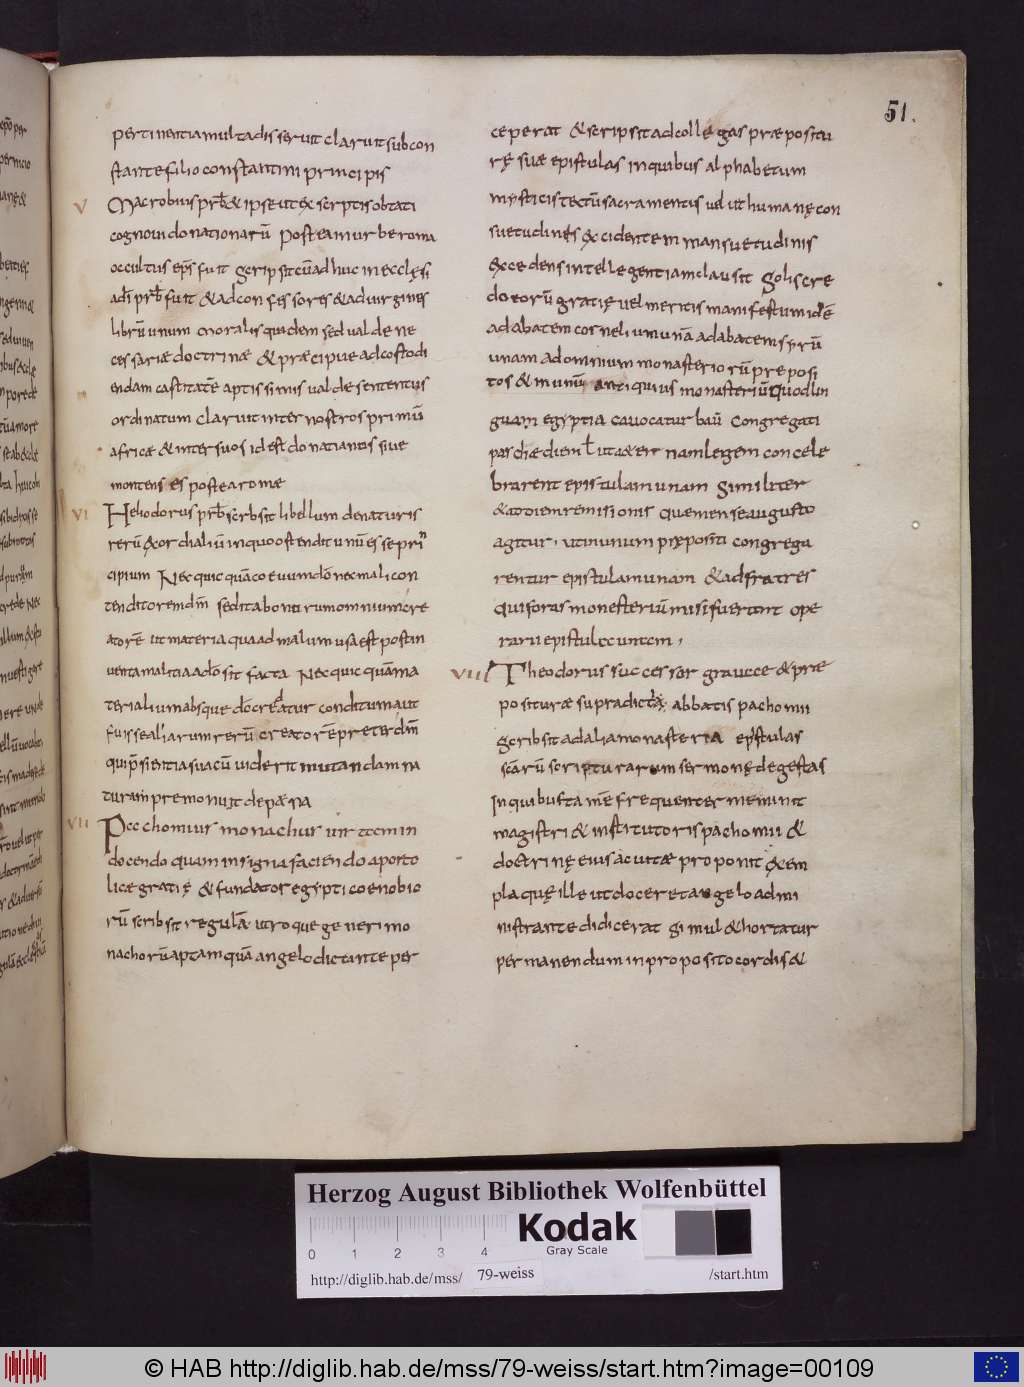 51.
pertinentia multa disseruit claruit sub con
stante filio constantini principis
V Macrobius prb̄ & ipse ut ex scriptis obtati
cognovi donationarū postea in urbe roma
occultus ep̄s fuit scripsit cū adhuc in ecclesi
adī prb̄ fuit & ad confessores & ad virgines
librū unum moralis quidem sed valde ne
cessariæ doctrinæ & præcipue ad costodi
endam castitatē aptissimis valde sententiis
ordinatum claruit inter nostros primū
africæ & inter suos id est donatianis sive
montenses postea romæ
VI Heliodorus prb̄ scribsit libellum de naturis
rerū exordialiū in quo ostendit unū esse prin
cipium Nec quicquā coevum dō nec mali con
ditorem dm̄ sed ita bonorum omnium cre
atorē ut materia quæ ad malum usa est post in
venta malitia a dō sit facta Nec quicquā ma
terialium absque dō creatur conditum aut
fuisse aliarum rerū creatorē preter dm̄
qui p̄sientia sua cū viderit mutandam na
turam premonuit de pæna
VII Pacchomius monachus vir tam in
docendo quam in signa faciendo aposto
licæ gratie & fundator egypti coenobio
rū scribsit regulā utroque generi mo
nachorū aptam quā angelo dictante per
ceperat & scripsit ad collegas præpositu
rę suæ epistulas in quibus alphabetum
mysticis tectū sacramentis vel ut humanę con
suetudines excidentem mansuetudinis
excedens intellegentiam clausit Solis cre
do eorū gratię vel meritis manifestum id ē
ad abatem cornelium unā ad abatem syrū
unam ad omnium monasteriorū preposi
tos & in unū antiquius monasteriū quod lin
guam egyptia cavocatur baū congregati
paschæ diem ut æternam legem concele
brarent epistulam unam Similiter
& ad diem remisionis quem ense augusto
agitur, ut in unum prepositi congrega
rentur epistulam unam & ad fratres
qui foras monesteriū misi fuerant ope
rarii epistulæ untem,
VIII Theodorus successor gratiæ & præ
posituræ supradicti abbatis pachomii
scribsit ad alia monasteria epistulas
scārū scripturarum sermonę degestas
In quibus tamē frequenter meminit
magistri & institutoris pachomii &
doctrinę eius ac vitæ proponit exem
pla quę ille ut doceret angelo admi
nistrante didicerat simul & hortatur
permanendum in proposito cordis &
Herzog August Bibliothek Wolfenbüttel
Kodak
Gray Scale
0 1 2 3 4
http://diglib.hab.de/mss/ 79-weiss /start.htm
© HAB http://diglib.hab.de/mss/79-weiss/start.htm?image=00109